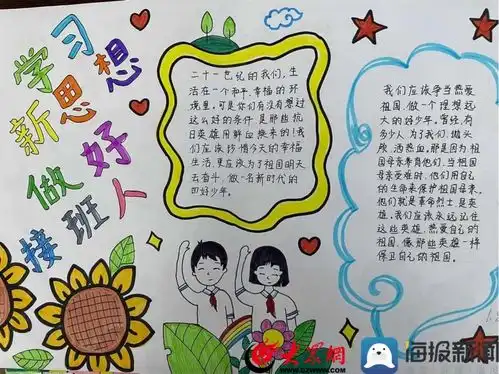 学习
新思想
做好
接班人
二十一世纪的我们,生
活在一个和平、幸福的环
境里。可是你们有没有想过
这么好的条件是那些抗
日英雄用鲜血换来的!我
们应该珍惜今天的幸福
生活,更应该为了祖国明天
去奋斗,做一名新时代的
四好少年。
我们应该争当热爱
祖国,做一个理想远
大的好少年。曾经,有
多少人为了我们,抛头
颅,洒热血。那是因为祖
国母亲养育他们,当祖国
母亲受难时,他们用自己
的生命来保护祖国母亲。
他们就是革命烈士,是英
雄。我们应该永远记住
这些英雄,热爱自己的
祖国,像那些英雄一样
保卫自己的祖国。
大众网
www.dzwww.com
海报新闻